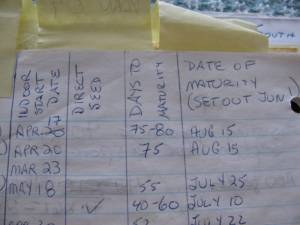 SOUTH
INDOOR START DATE
DIRECT SEED
DAYS TO MATURITY
DATE OF MATURITY (SET OUT JUN 1)
APR 20 17 75-80 AUG 15
APR 20 75 AUG 15
MAR 23
MAY 18 55 JULY 25
✓ 40-60 JULY 10
JULY 22